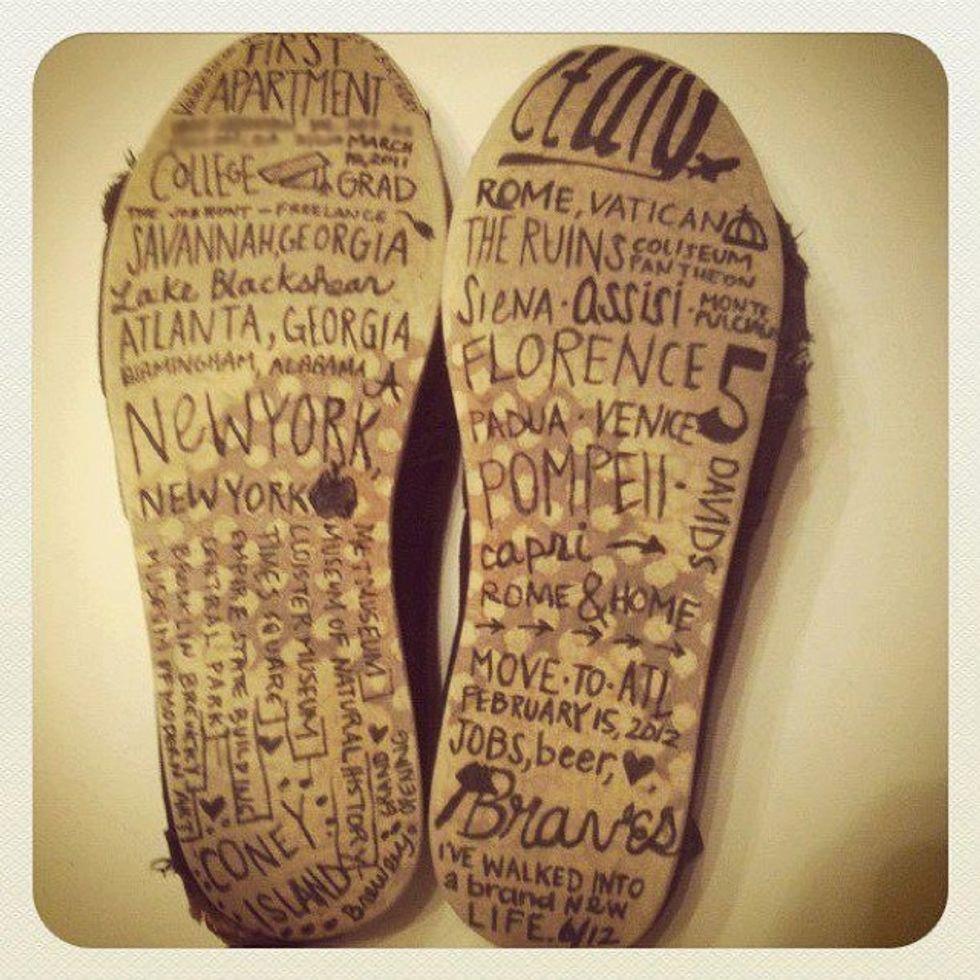 FIRST
APARTMENT
MARCH
10, 2011
COLLEGE GRAD
THE JOB HUNT - FREELANCE
SAVANNAH, GEORGIA
Lake Blackshear
ATLANTA, GEORGIA
BIRMINGHAM, ALABAMA
NEW YORK,
NEW YORK
MET MUSEUM
MUSEUM OF NATURAL HISTORY
CLOISTER MUSEUM
TIMES SQUARE
EMPIRE STATE BUILDING
CENTRAL PARK
BROOKLIN BREWERY
MUSEUM OF MODERN ART
GRAND
OPENING
CONEY
ISLAND
ITALY.
ROME, VATICAN
THE RUINS COLISEUM
PANTHEON
SIENA · ASSISI · MONTE
FLORENCE
5 DAVIDS
PADUA · VENICE
POMPEII ·
capri →
ROME & HOME
→ → → → →
MOVE · TO · ATL
FEBRUARY 15, 2012
JOBS, beer, ♥.
Braves
I'VE WALKED INTO
a brand NEW
LIFE. 6/12